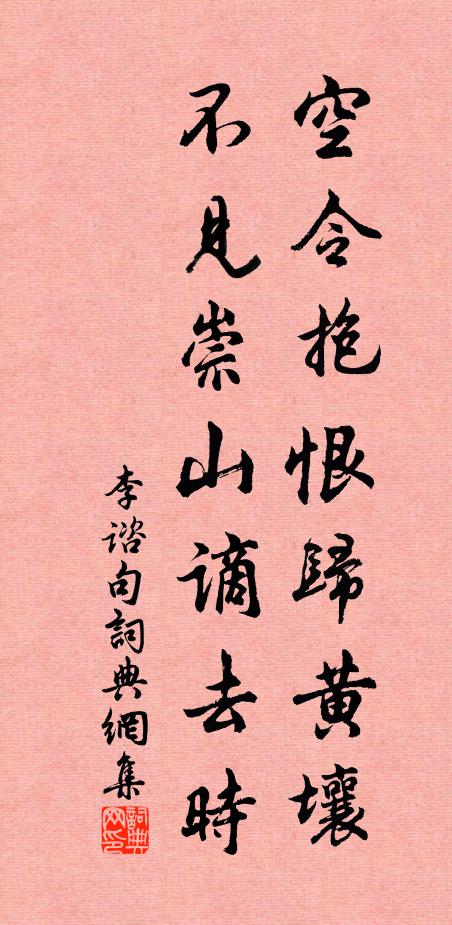 空令抱恨歸黃壤
不見崇山謫去時
李諮句詞典網集
詞典網印